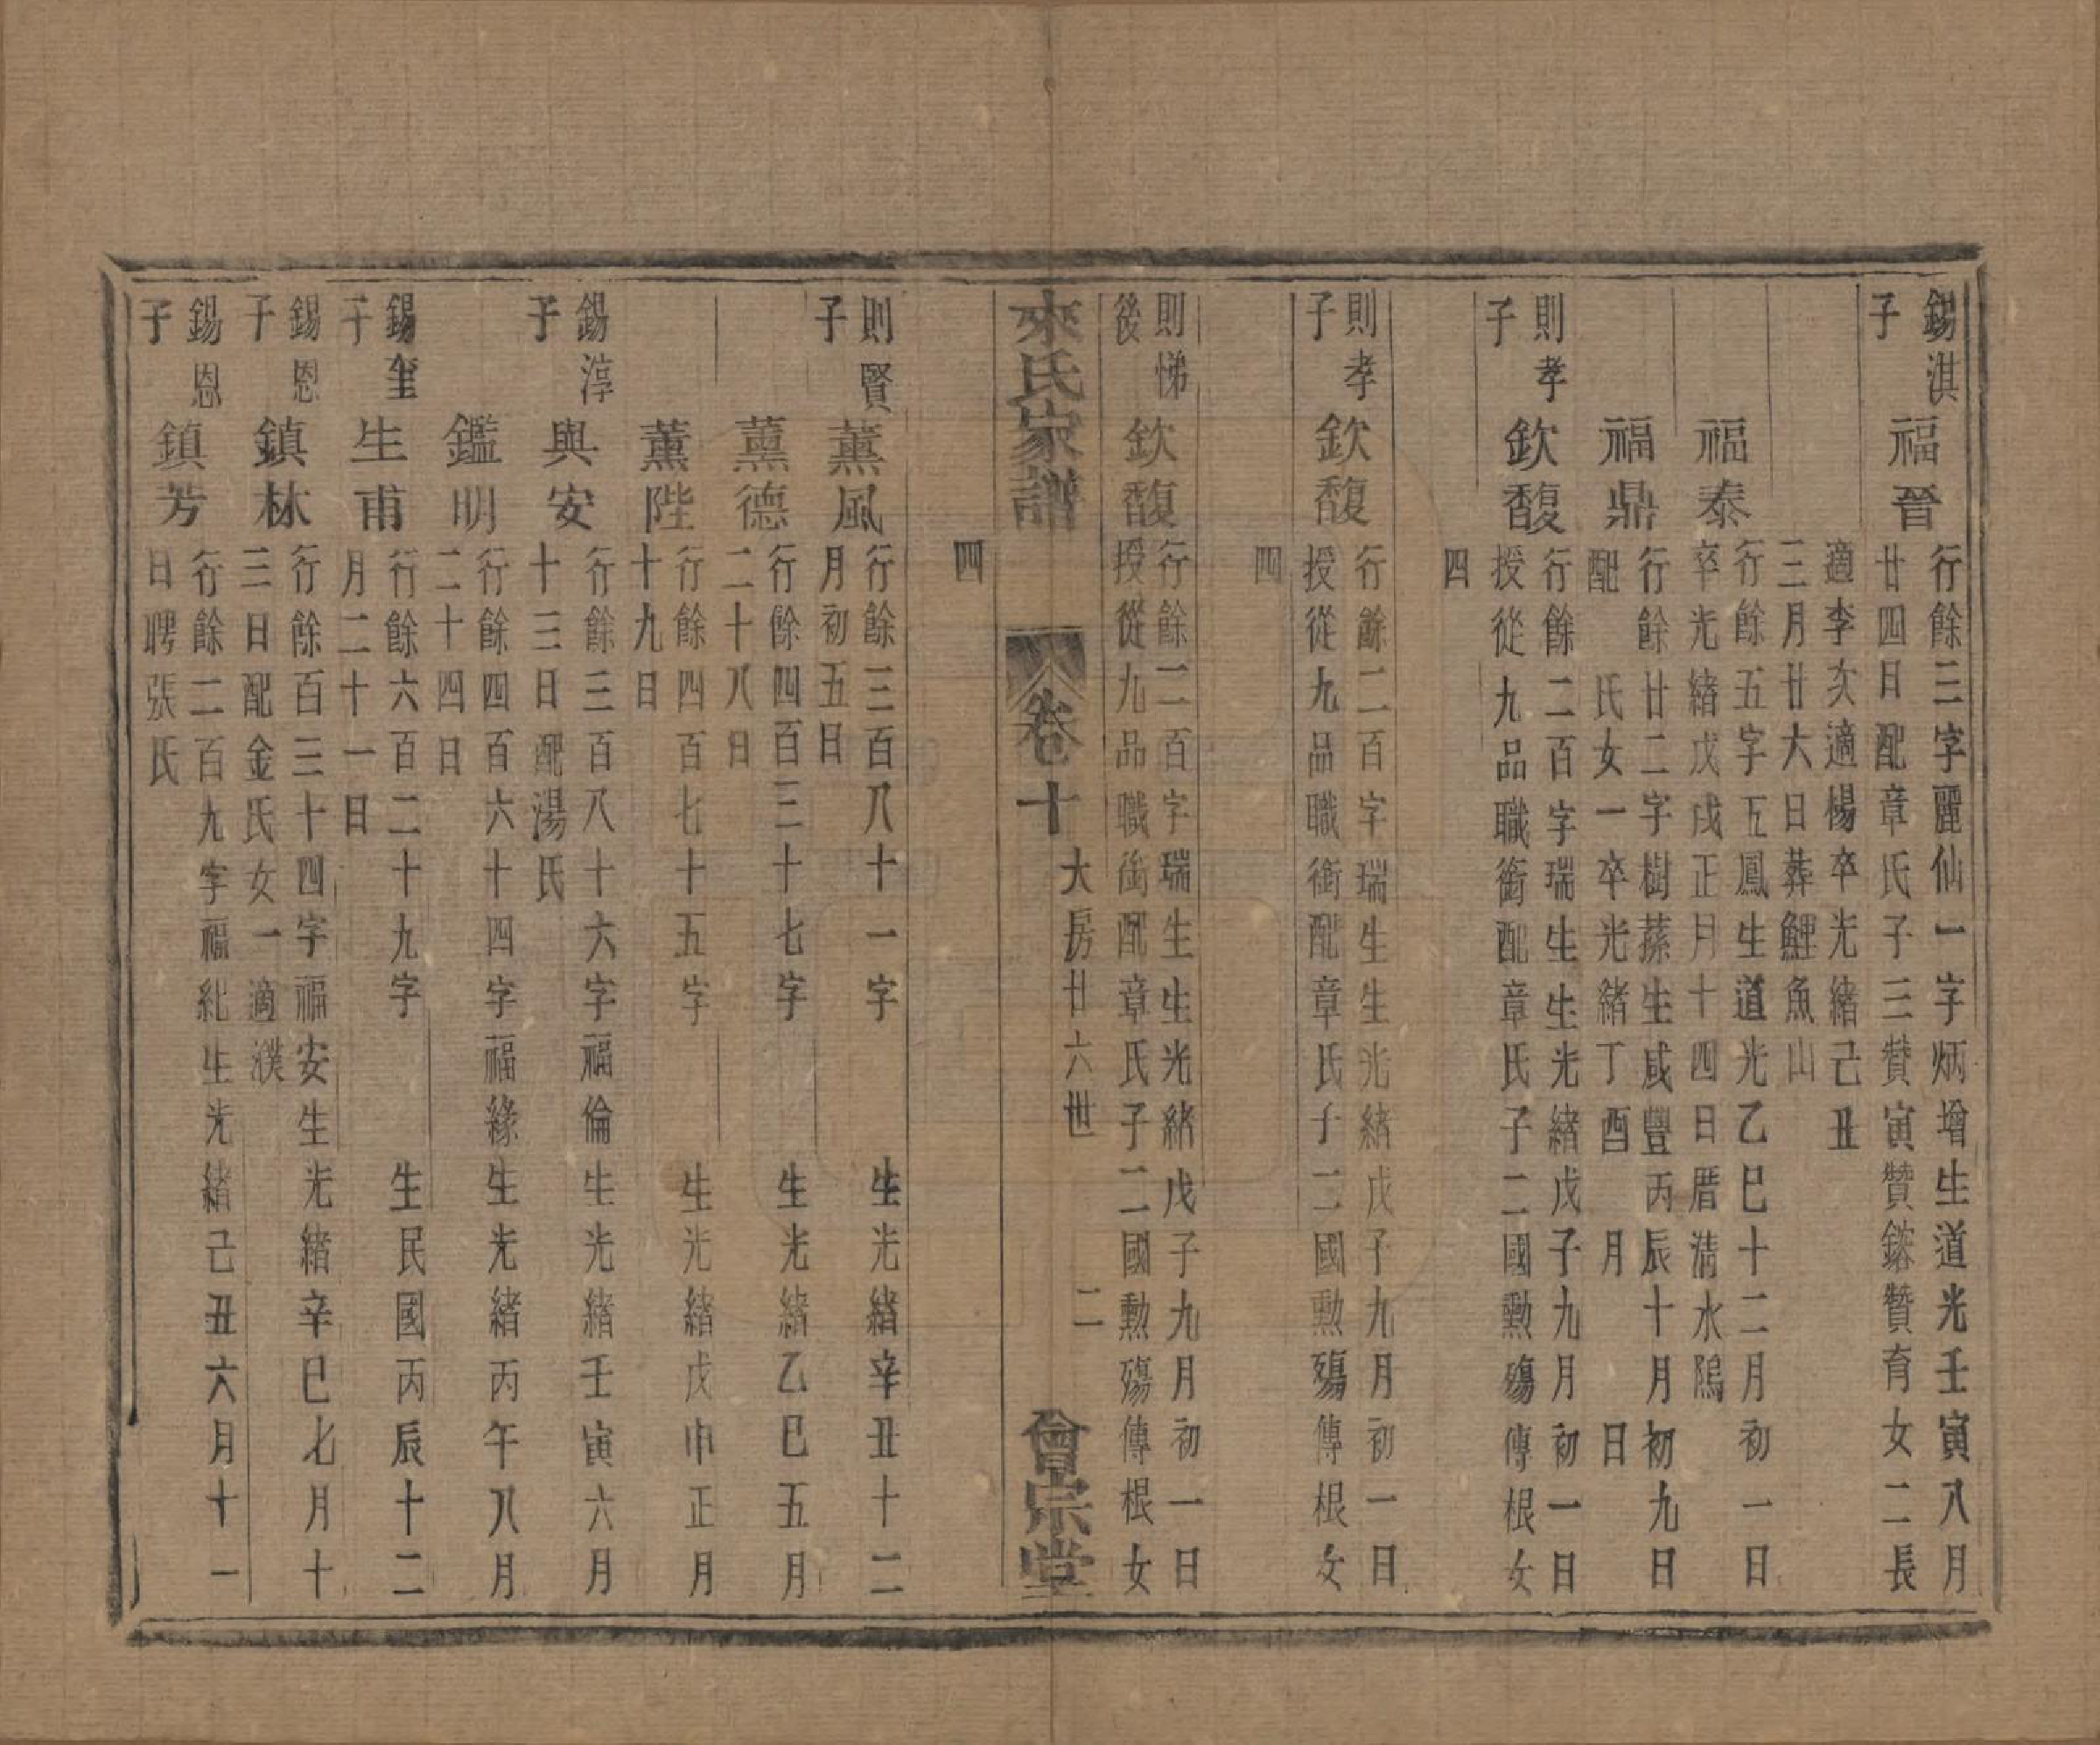 錫淇子
福晉
行餘三字麗仙一字炳增生道光壬寅八月
廿四日配章氏子三贊寅贊鎔贊育女二長
適李次適楊卒光緒己丑
三月廿六日葬鯉魚山
福泰
行餘五字五鳳生道光乙巳十二月初一日
卒光緒戊戌正月十四日厝淸水隖
福鼎
行餘廿二字樹蓀生咸豐丙辰十月初九日
配 氏女一卒光緒丁酉 月 日
則孝子
欽馥
行餘二百字瑞生生光緒戊子九月初一日
授從九品職銜配章氏子二國勲殤傳根女
四
則孝子
欽馥
行餘二百字瑞生生光緒戊子九月初一日
授從九品職銜配章氏子二國勲殤傳根女
四
則悌後
欽馥
行餘二百字瑞生生光緒戊子九月初一日
授從九品職銜配章氏子二國勲殤傳根女
來氏家譜 卷十 大房廿六世 二 會宗堂
四
則賢子
薰風
行餘三百八十一字 生光緒辛丑十二
月初五日
薰德
行餘四百三十七字 生光緒乙巳五月
二十八日
薰陛
行餘四百七十五字 生光緒戊申正月
十九日
錫淳子
與安
行餘三百八十六字福倫生光緒壬寅六月
十三日配湯氏
鑑明
行餘四百六十四字福緣生光緒丙午八月
二十四日
錫奎子
生甫
行餘六百二十九字 生民國丙辰十二
月二十一日
錫恩子
鎮林
行餘百三十四字福安生光緒辛巳七月十
三日配金氏女一適濮
錫恩子
鎮芳
行餘二百九字福紀生光緒己丑六月十一
日聘張氏